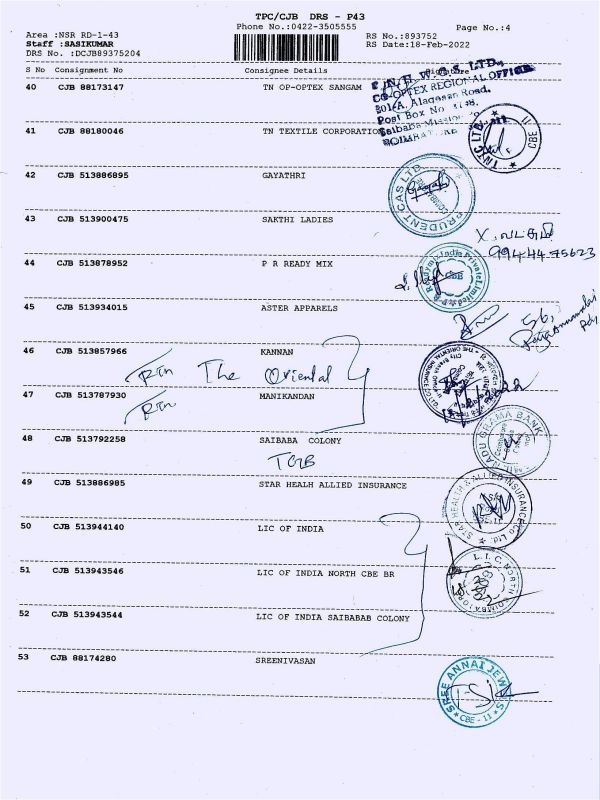 TPC/CJB DRS - P43
Phone No.:0422-3505555
Page No.:4
Area :NSR RD-1-43
RS No.:893752
Staff :SASIKUMAR
RS Date:18-Feb-2022
DRS No. :DCJB89375204
S No Consignment No Consignee Details
T.N.H.W.C.S. LTD.,
CO-OPTEX REGIONAL OFFICE
201-A, Alagesan Road,
Post Box No. 1148,
Saibaba Mission
40 CJB 88173147 TN OP-OPTEX SANGAM
41 CJB 88180046 TN TEXTILE CORPORATION
T N C LTD. CBE 11
42 CJB 513886895 GAYATHRI
PRUDENT CAS LTD
Gayathri
43 CJB 513900475 SAKTHI LADIES
99444 75623
44 CJB 513878952 P R READY MIX
P R Readymix India Private Limited
45 CJB 513934015 ASTER APPARELS
46 CJB 513857966 KANNAN
The Oriental
47 CJB 513787930 MANIKANDAN
THE ORIENTAL INSURANCE
48 CJB 513792258 SAIBABA COLONY
TGB
TAMIL NADU GRAMA BANK
49 CJB 513886985 STAR HEALH ALLIED INSURANCE
STAR HEALTH & ALLIED INSURANCE CO Ltd.
50 CJB 513944140 LIC OF INDIA
51 CJB 513943546 LIC OF INDIA NORTH CBE BR
L.I.C. NORTH COIMBATORE
52 CJB 513943544 LIC OF INDIA SAIBABAB COLONY
53 CJB 88174280 SREENIVASAN
SREE ANNAI JEWELS
CBE - 11